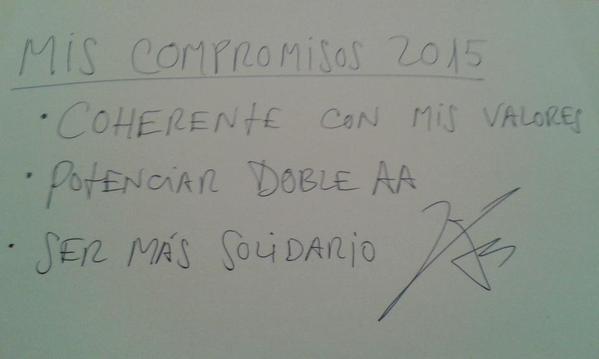 MIS COMPROMISOS 2015
• COHERENTE CON MIS VALORES
• POTENCIAR DOBLE AA
• SER MÁS SOLIDARIO